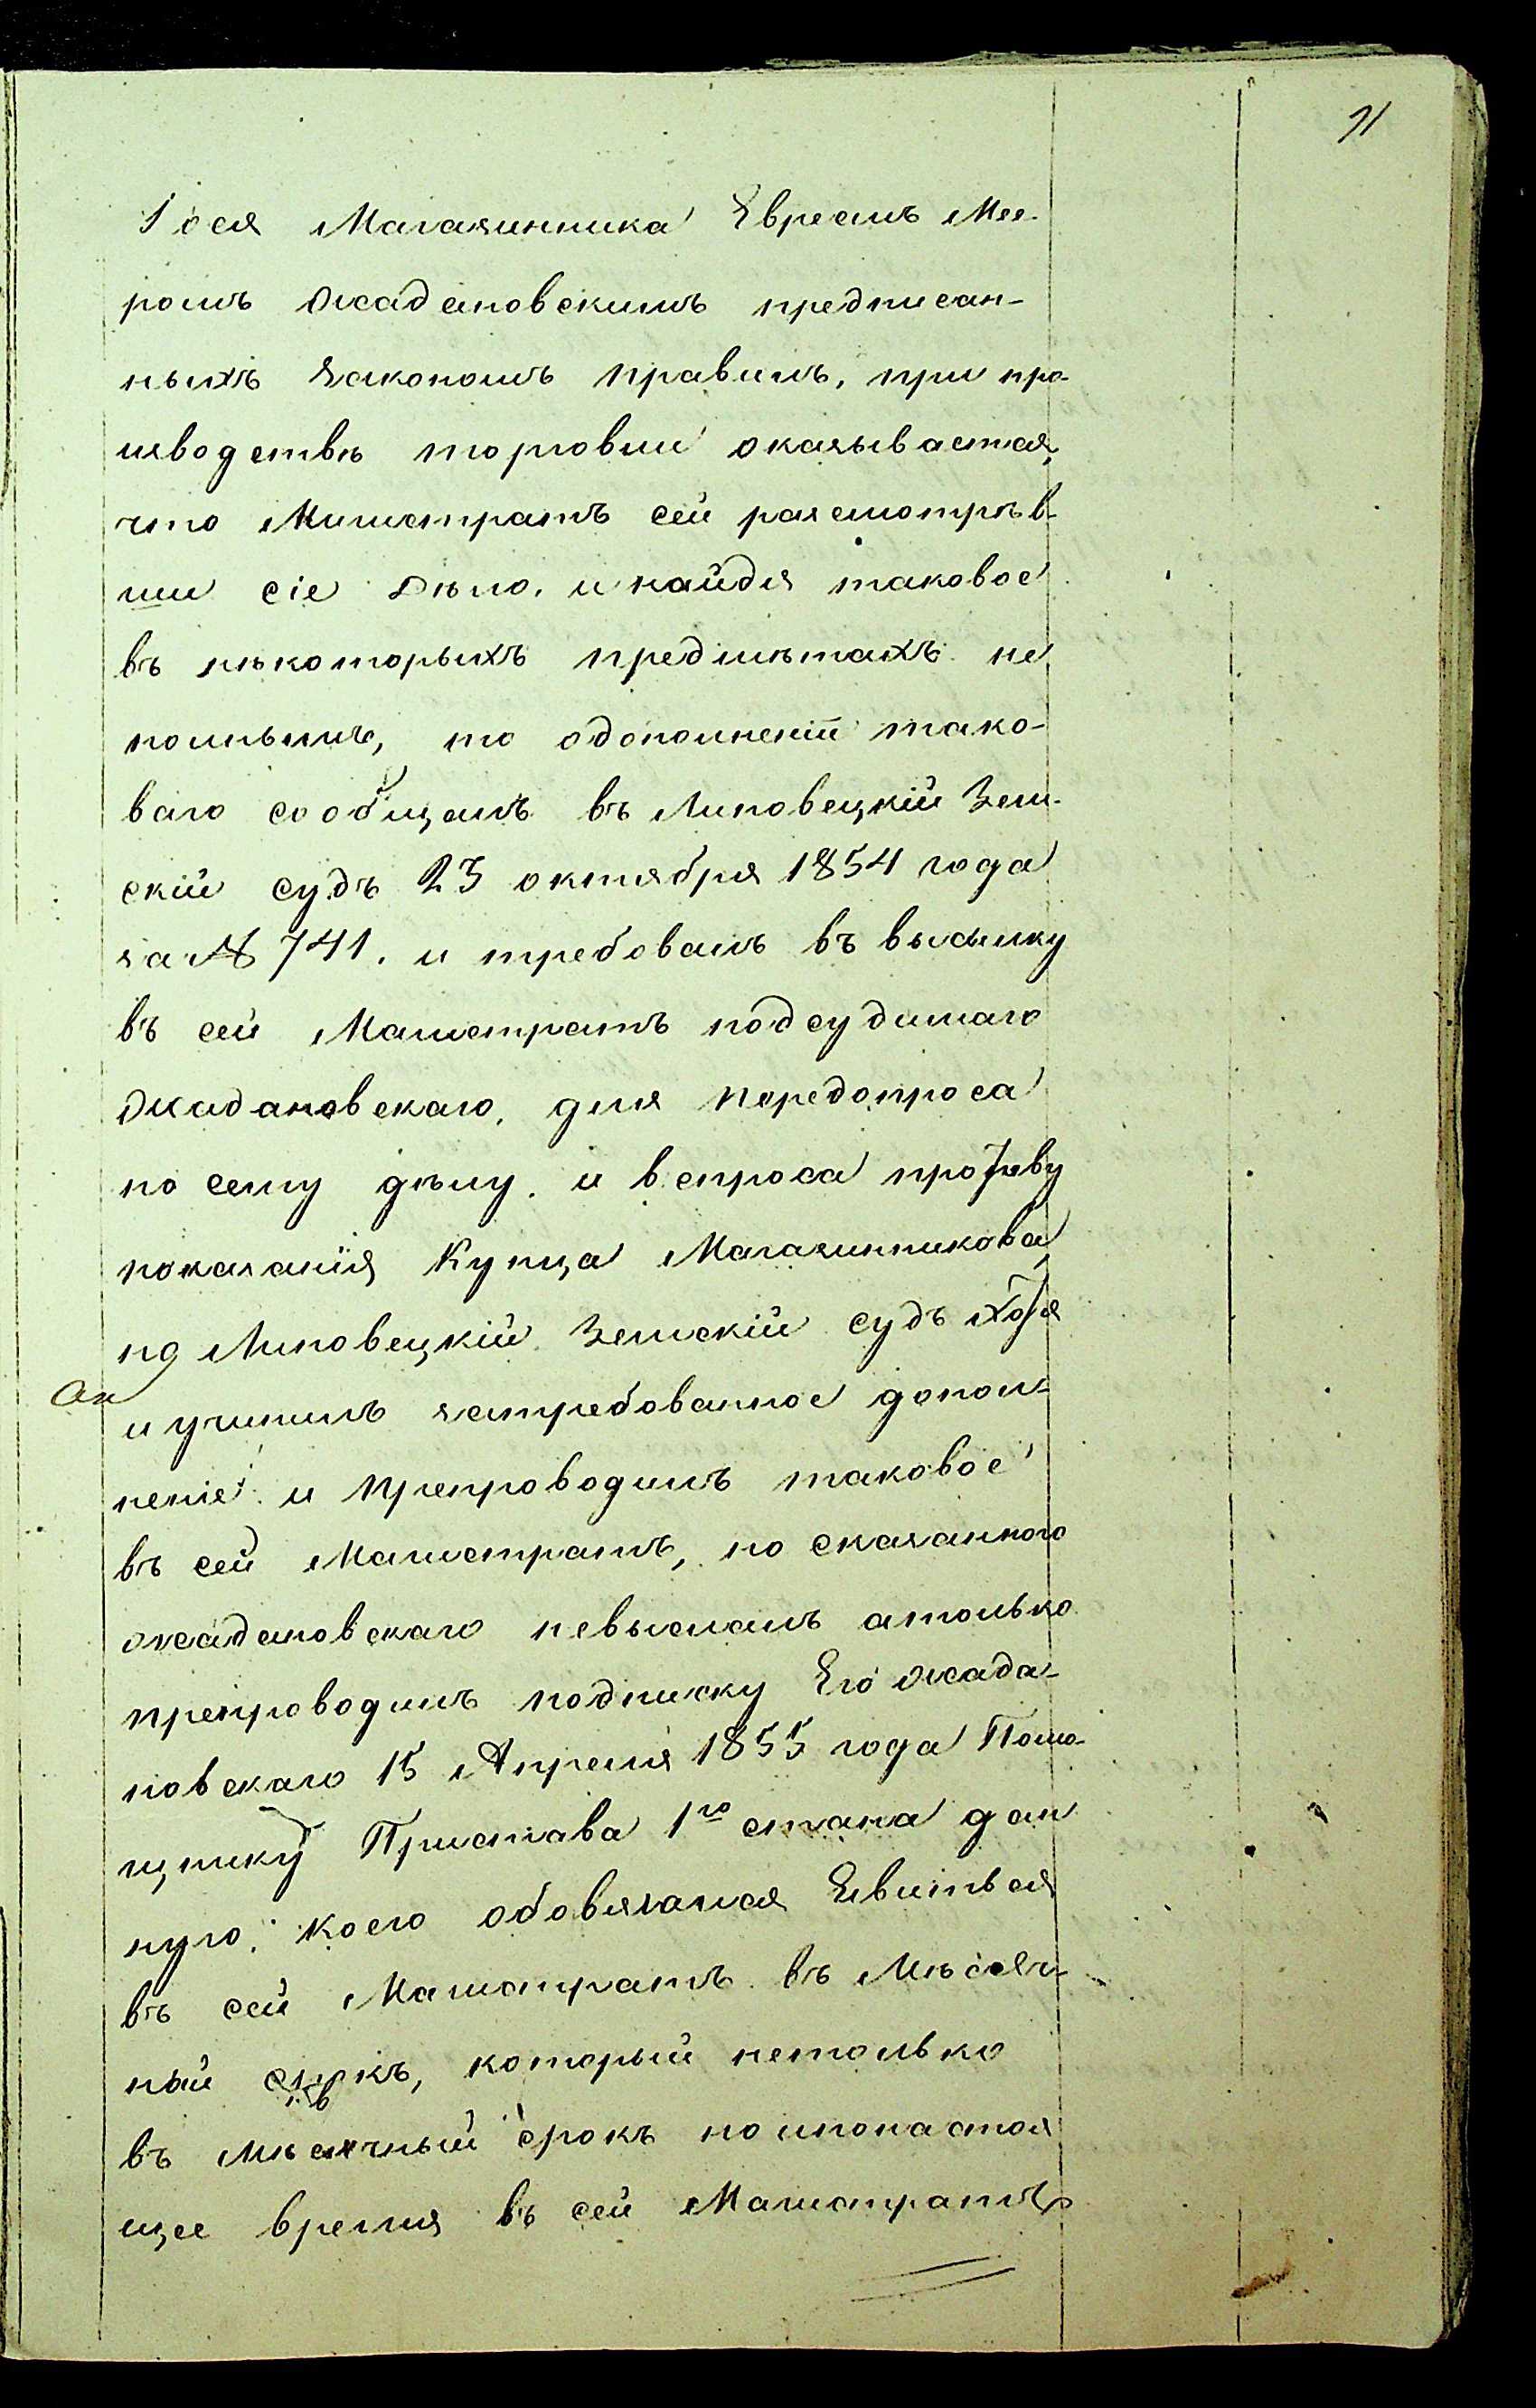 91
Іося Магазинника Евреемъ Мее-
ромъ Жадановскимъ предписан-
ныхъ закономъ правилъ, при про-
изводствѣ торговли оказывается,
что Магистратъ сей разсмотрѣв-
ши сіе дѣло, и найдя таковое
въ нѣкоторыхъ предмѣтахъ не
полнымъ, то одополненіи тако-
ваго сообщалъ въ Липовецкій Зем-
скій судъ 23 октября 1854 года
за № 741. и требовалъ въ высылку
въ сей Магистратъ подсудимаго
Жадановскаго, для передопроса
по сему дѣлу. и вспроса противу
показанія Купца Магазинникова,
но Липовецкій Земскій судъ хотя
и учинилъ затребованное допол-
неніе и препроводилъ таковое
въ сей Магистратъ, но сказанного
Жадановскаго невыслалъ атолько
препроводилъ подписку Его Жада-
новскаго 15 Апреля 1855 года Помо-
щнику Пристава 1го стана дан
ную, коего обовязался Евиться
въ сей Магистратъ въ Мѣсяч-
ный срокъ, который нетолько
въ мѣсячный срокъ но ипонастоя
щее время въ сей Магистратъ